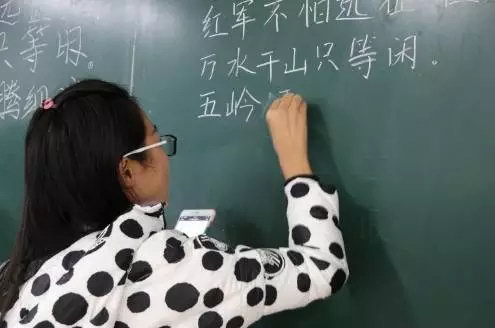 只等
腾细
红军不怕远征
万水千山只等闲。
五岭